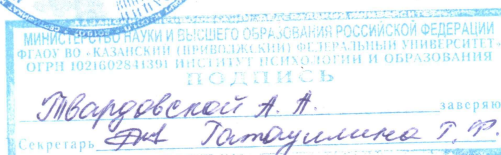 МИНИСТЕРСТВО НАУКИ И ВЫСШЕГО ОБРАЗОВАНИЯ РОССИЙСКОЙ ФЕДЕРАЦИИ
ФГАОУ ВО «КАЗАНСКИЙ (ПРИВОЛЖСКИЙ) ФЕДЕРАЛЬНЫЙ УНИВЕРСИТЕТ»
ОГРН 1021602841391 ИНСТИТУТ ПСИХОЛОГИИ И ОБРАЗОВАНИЯ
ПОДПИСЬ
Твардовской А. А. заверяю
Секретарь Т. Р.